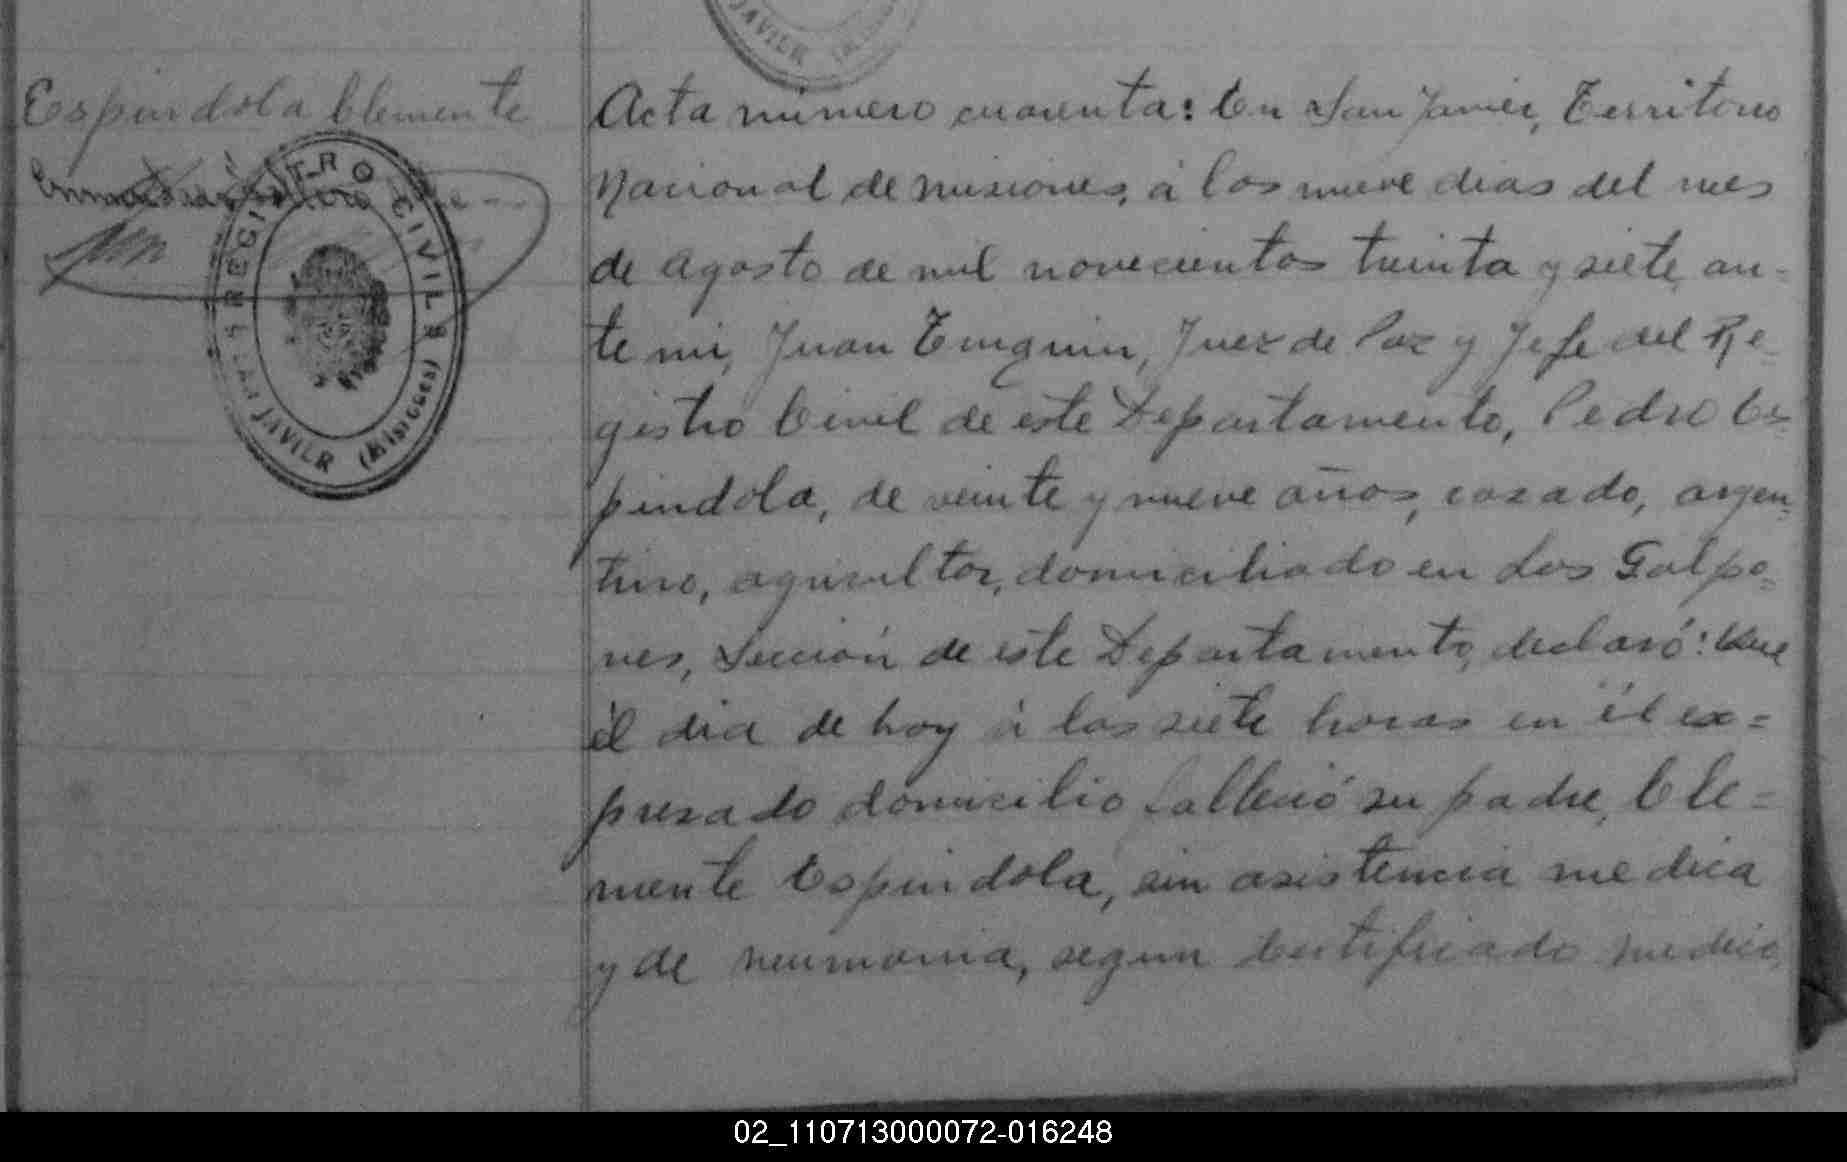 JAVIER
Espindola Clemente
REGISTRO CIVIL
JAVIER (Misiones)
Acta número cuarenta: En San Javier, Territorio
Nacional de Misiones, á los nueve dias del mes
de Agosto de mil novecientos treinta y siete, an-
te mi, Juan, Juez de Paz y Jefe del Re-
gistro Civil de este Departamento, Pedro Es-
pindola, de veinte y nueve años, casado, argen-
tino, agricultor, domiciliado en Los Galpo-
nes, Sección de este Departamento, declaró: Que
él dia de hoy á las siete horas en él ex=
presado domicilio falleció su padre, Cle=
mente Espindola, sin asistencia medica
y de neumonia, segun Certificado medico,
02_110713000072-016248